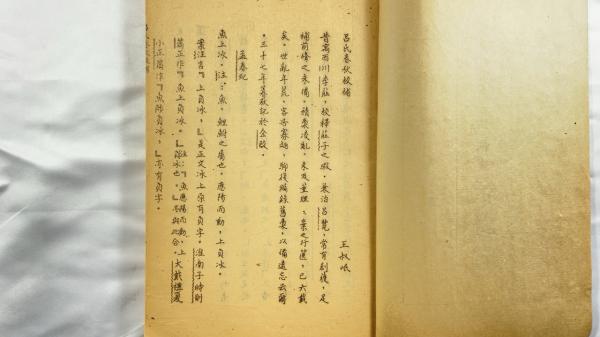 呂氏春秋校補
王叔岷
昔寓西川李莊,校釋莊子之暇,兼治呂覽,常有創獲,足
補前脩之未備。積稾凌亂,未及董理;棄之行篋,已六載
矣。世亂年荒,客居寡趣,聊復繕錄舊稾,以備遺忘云爾
三十七年暮秋記於金陵。
孟春紀
魚上冰。注:魚,鯉鮒之屬也,應陽而動,上負冰。
案注言『上負冰,』是正文冰上原有負字。淮南子時則
篇正作『魚上負冰。』注:『魚應陽而動,上負冰也。』亦與此合。大戴禮夏
小正篇作『魚陟負冰,』亦有負字。